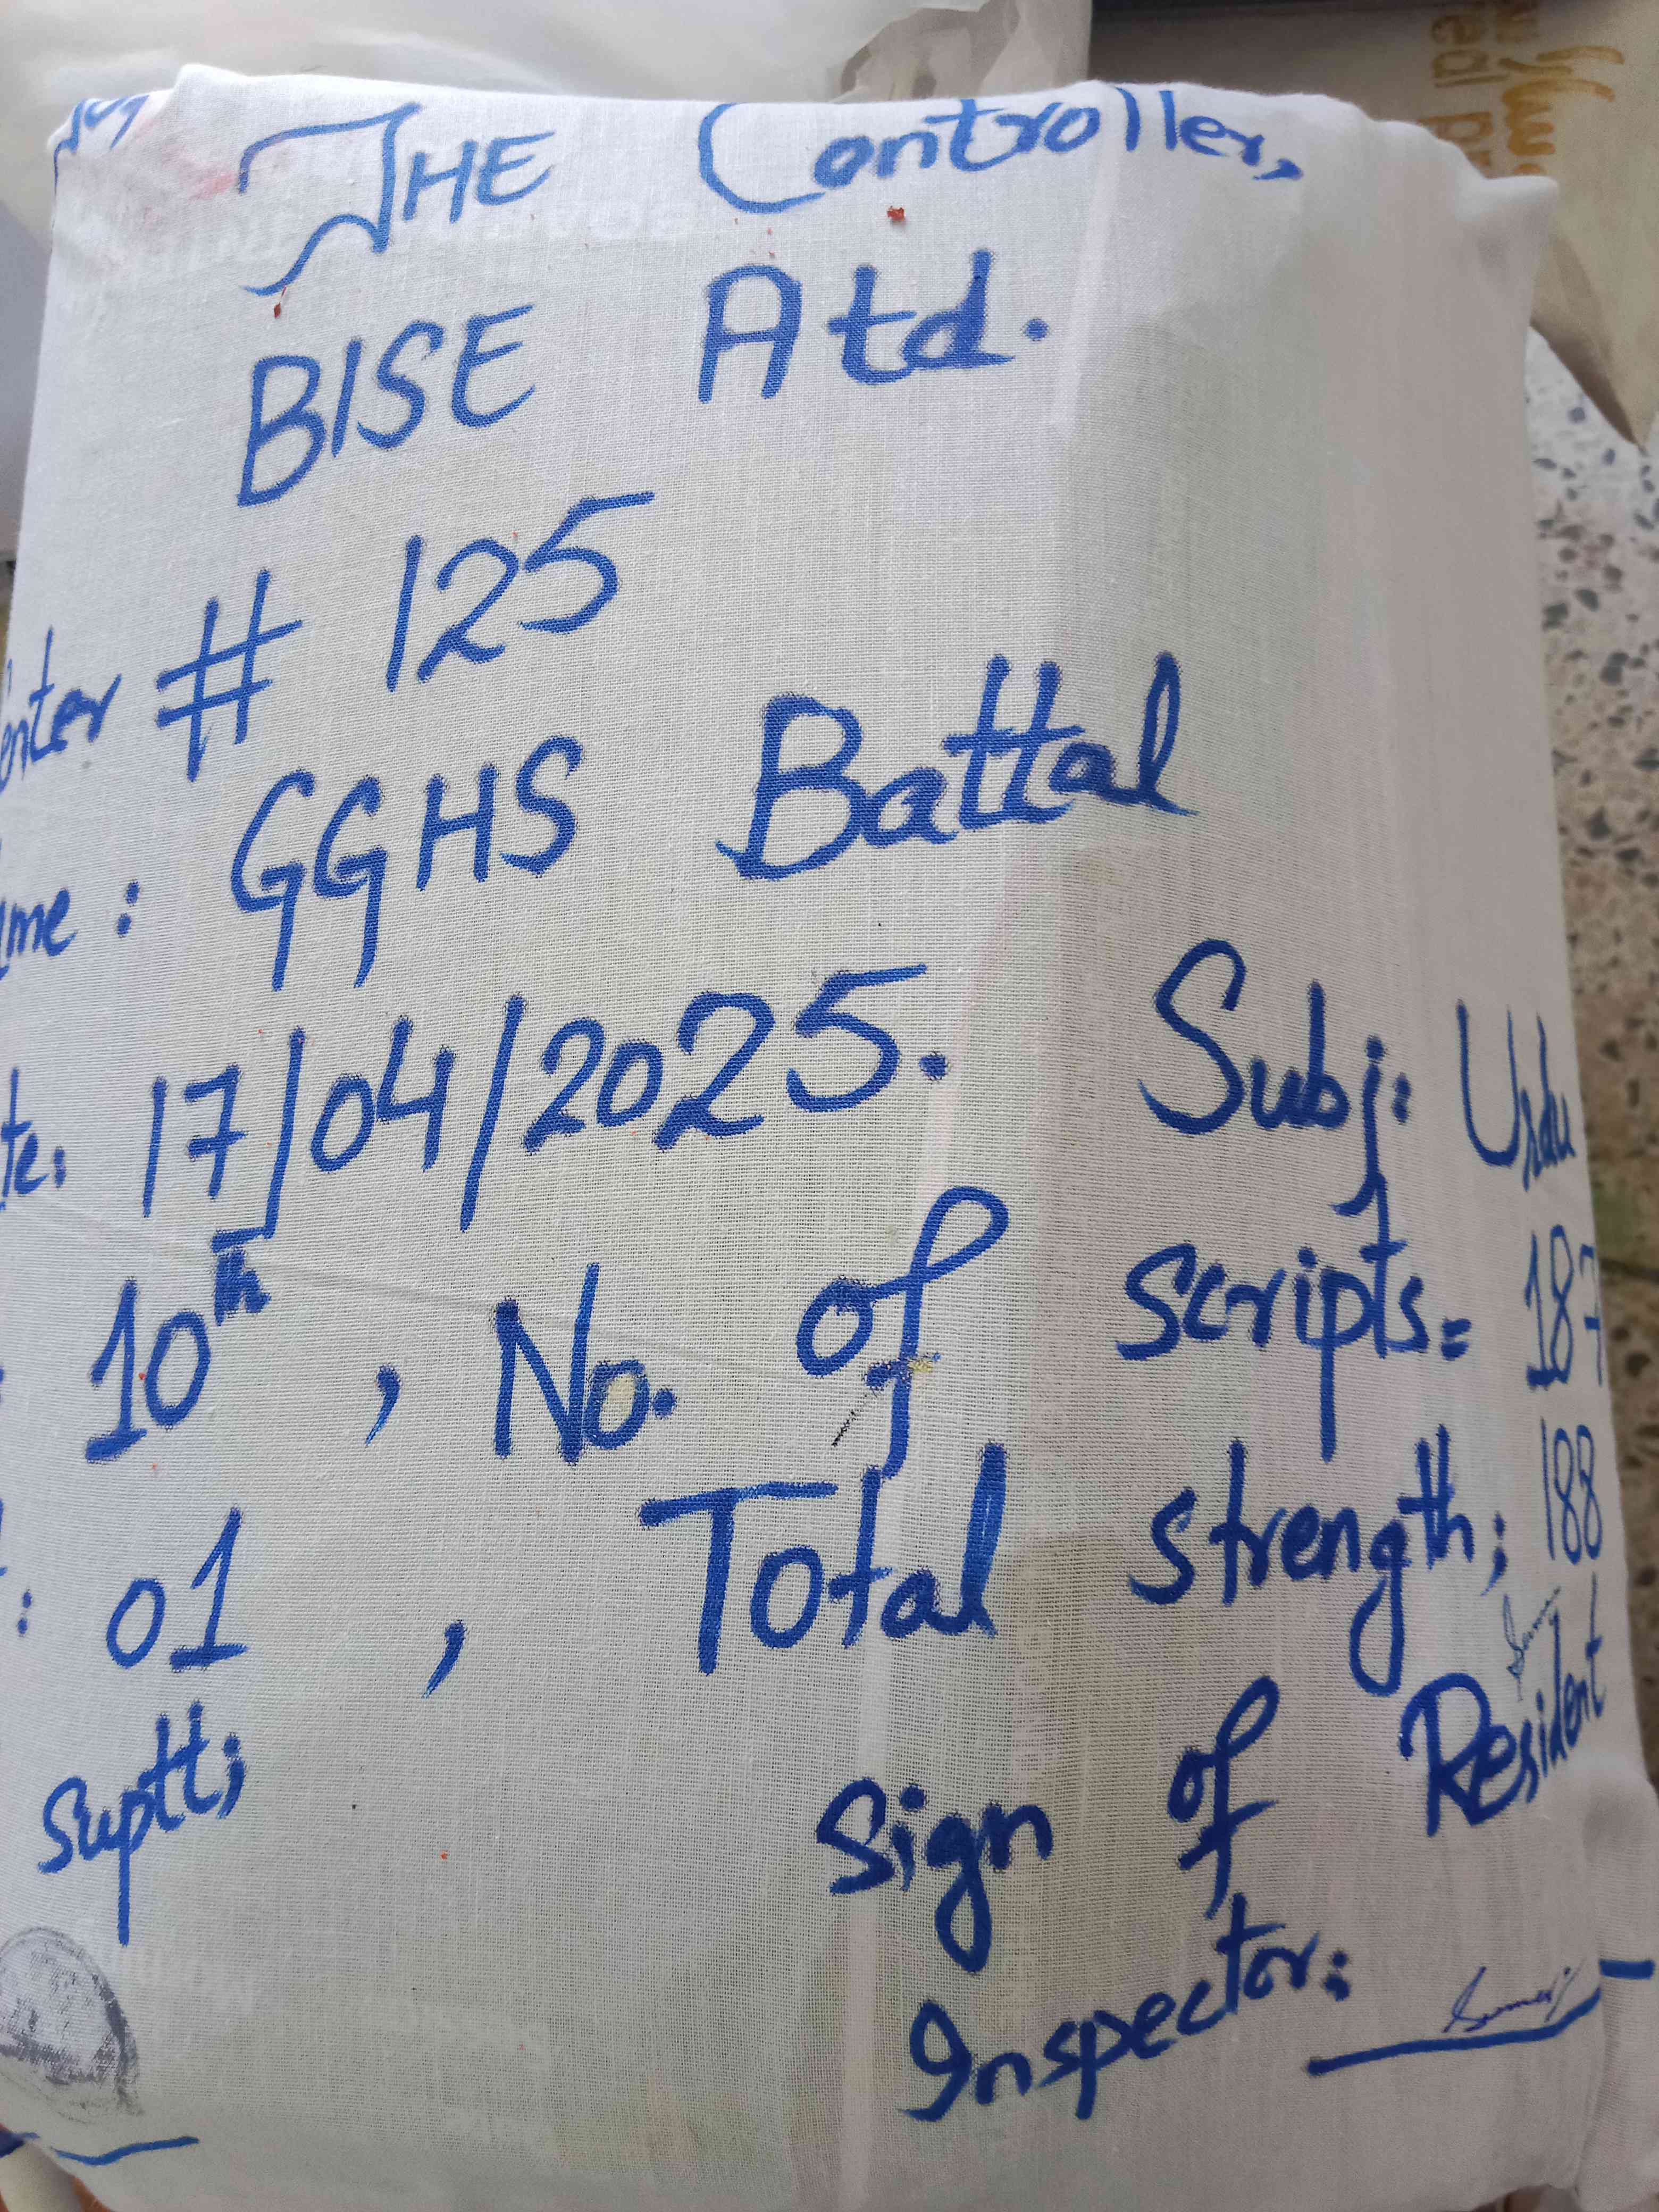 THE Controller,
BISE Atd.
enter # 125
ame : GGHS Battal
te: 17/04/2025. Subj: Urdu
: 10th , No. of scripts= 187
: 01 , Total strength; 188
Suptt; Sign of Resident
Inspector: